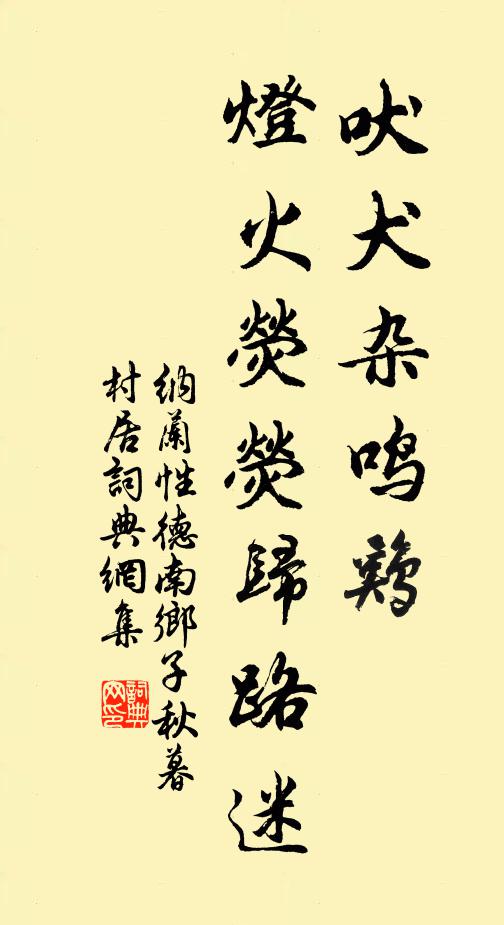 吠犬杂鸣鷄
燈火熒熒歸路迷
納蘭性德南鄉子秋暮
村居詞典網集
詞典
网印